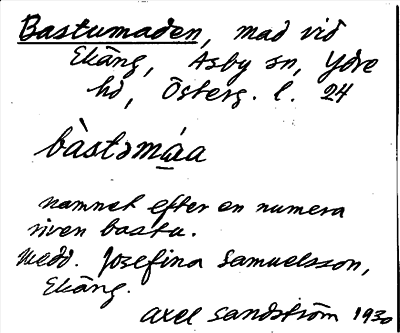 Bastumaden, mad vid
Ekäng, Asby sn, Ydre
hd, Österg. l. 24
bàstəmáa
namnet efter en numera
riven bastu.
Medd. Josefina Samuelsson,
Ekäng.
Axel Sandström 1930